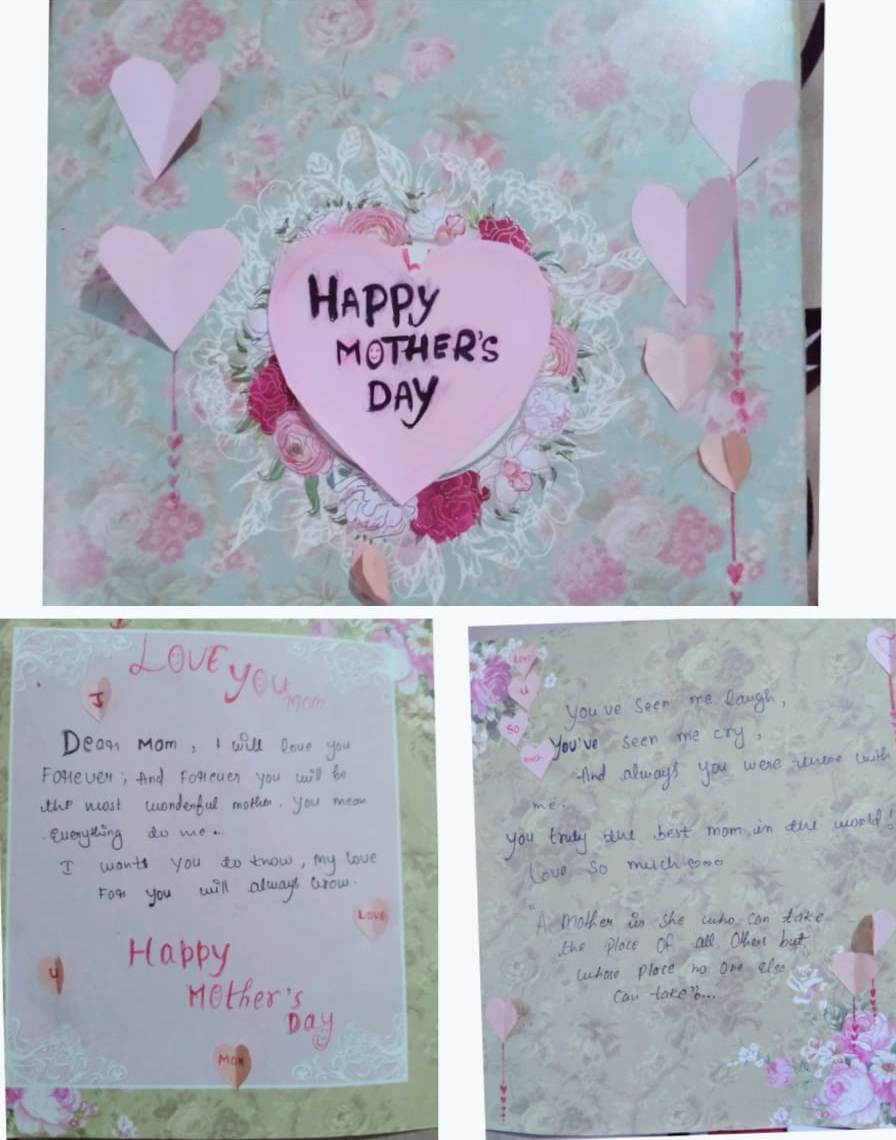 HAPPY
MOTHER'S
DAY
LOVE YOU
Mom
I
Dear Mom, I will love you
Forever, And Forever you will be
the most wonderful mother. You mean
Everything to me..
I wants you to know, my love
For you will always Grow.
Love
U
Happy
Mother's
Day
Mom
Love
U
So
much
You've seen me laugh,
You've seen me cry,
And always you were there with
me.
You truly the best mom in the world!
Love so much
"A Mother is she who can take
the place of all others but
whose place no one else
can take"...